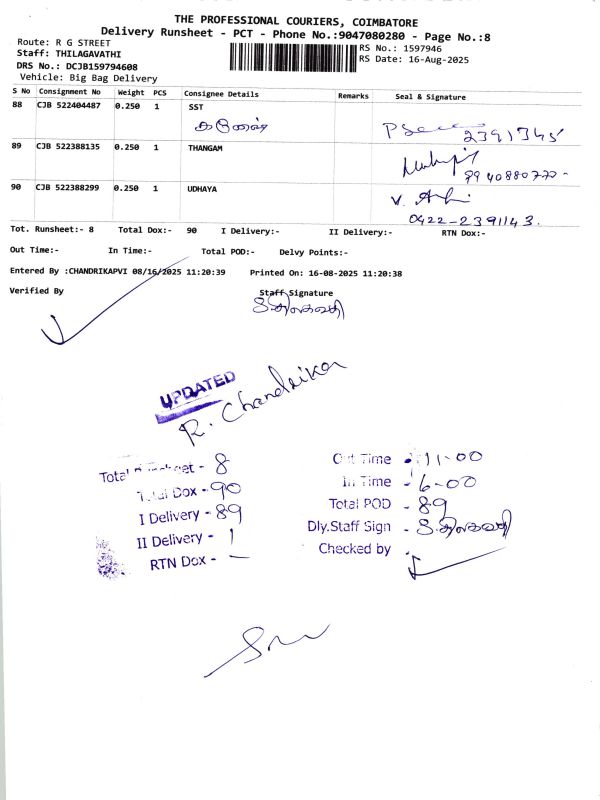 THE PROFESSIONAL COURIERS, COIMBATORE
Delivery Runsheet - PCT - Phone No.:9047080280 - Page No.:8
Route: R G STREET
Staff: THILAGAVATHI
DRS No.: DCJB159794608
Vehicle: Big Bag Delivery
RS No.: 1597946
RS Date: 16-Aug-2025
S No Consignment No Weight PCS Consignee Details Remarks Seal & Signature
88 CJB 522404487 0.250 1 SST
2391345
89 CJB 522388135 0.250 1 THANGAM
9940880770-
90 CJB 522388299 0.250 1 UDHAYA
0422-2391143.
Tot. Runsheet:- 8 Total Dox:- 90 I Delivery:- II Delivery:- RTN Dox:-
Out Time:- In Time:- Total POD:- Delvy Points:-
Entered By :CHANDRIKAPVI 08/16/2025 11:20:39 Printed On: 16-08-2025 11:20:38
Verified By Staff Signature
UPDATED
R. Chandrika
Total - 8
Total Dox - 90
I Delivery - 89
II Delivery - 1
RTN Dox - —
Out Time - 11-00
In Time - 6-00
Total POD - 89
Dly.Staff Sign -
Checked by -